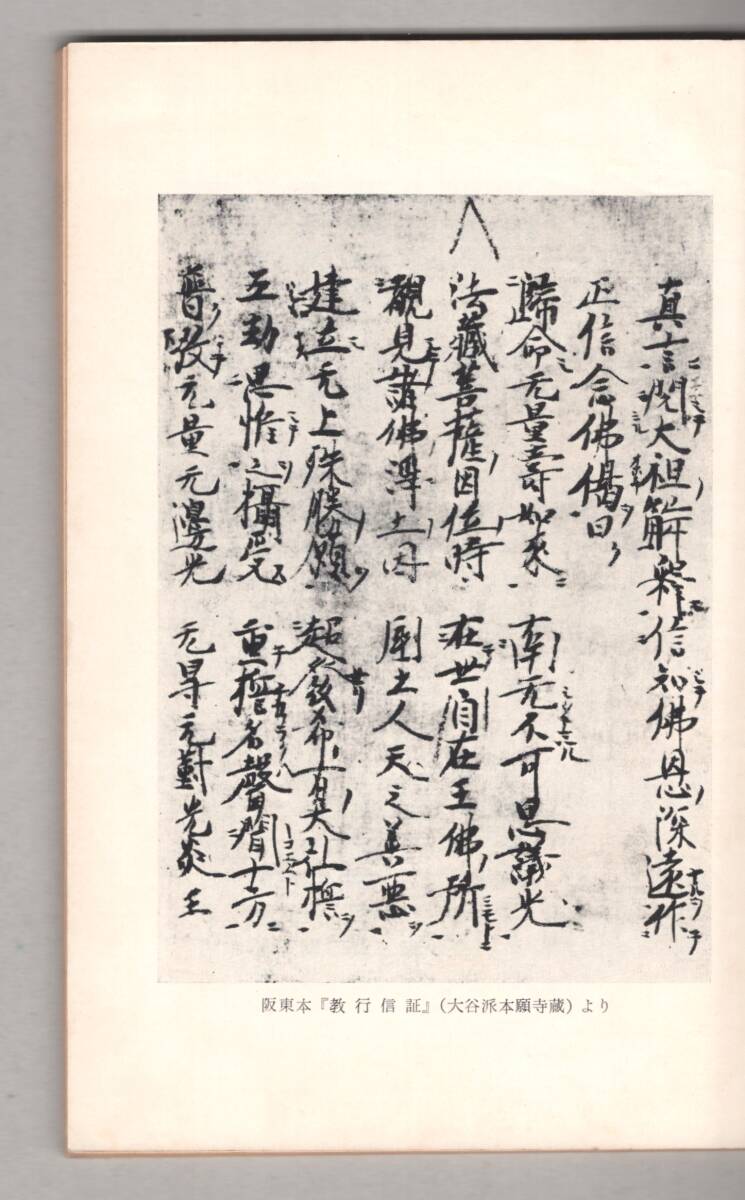 真言閲大祖解釋信知佛恩深遠作
正信念佛偈曰
歸命无量壽如來　南无不可思議光
法藏菩薩因位時　在世自在王佛所
覩見諸佛淨土因　國土人天之善惡
建立无上殊勝願　超發希有大弘誓
五劫思惟之攝受　重誓名聲聞十方
普放无量无邊光　无㝵无對光炎王
阪東本『教行信証』（大谷派本願寺蔵）より